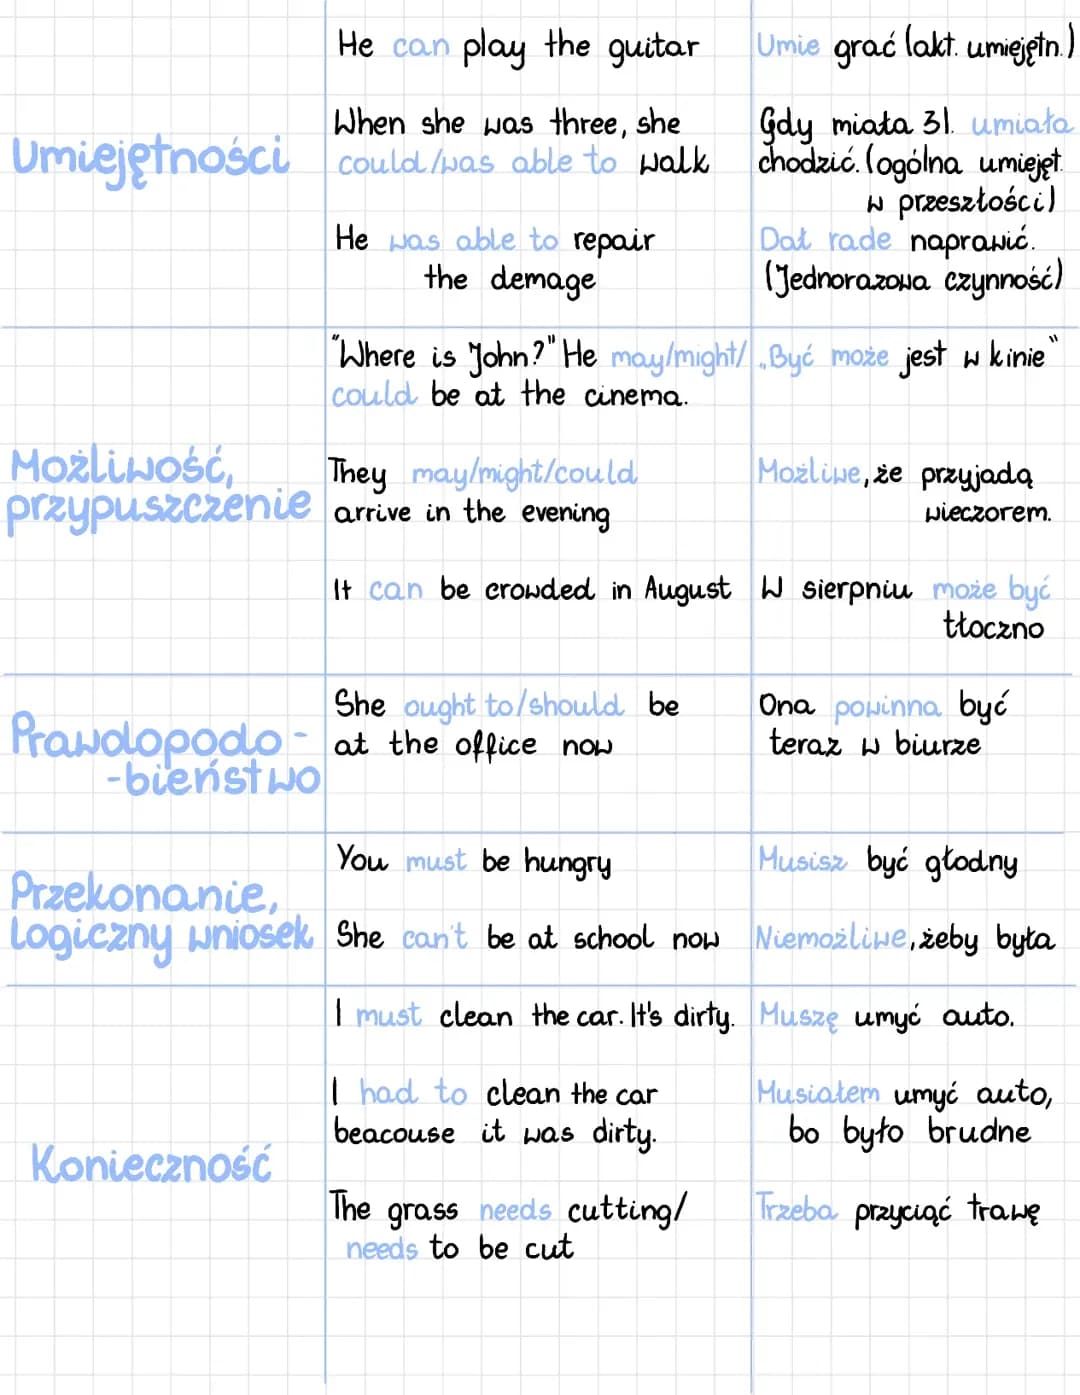 He can play the guitar
Umie grać (akt. umiejętn.)
Umiejętności
When she was three, she
could/was able to walk
Gdy miała 3l. umiała
chodzić. (ogólna umiejęt.
w przeszłości)
He was able to repair
the demage
Dał rade naprawić.
(Jednorazowa czynność)
Możliwość,
przypuszczenie
"Where is John?" He may/might/
could be at the cinema.
„Być może jest w kinie"
They may/might/could
arrive in the evening
Możliwe, że przyjadą
wieczorem.
It can be crowded in August
W sierpniu może być
tłoczno
Prawdopodo-
-bieństwo
She ought to/should be
at the office now
Ona powinna być
teraz w biurze
Przekonanie,
logiczny wniosek
You must be hungry
Musisz być głodny
She can't be at school now
Niemożliwe, żeby była
Konieczność
I must clean the car. It's dirty.
Muszę umyć auto.
I had to clean the car
beacouse it was dirty.
Musiałem umyć auto,
bo było brudne
The grass needs cutting/
needs to be cut
Trzeba przyciąć trawę